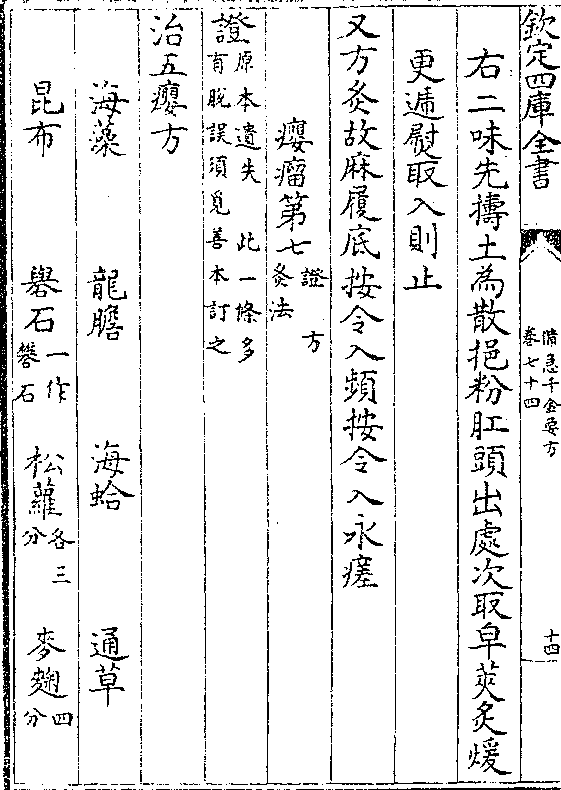 欽定四庫全書
備急千金要方
卷七十四
十四
右二味先擣土為散挹粉肛頭出處次取皁莢炙煖
更遞熨取入則止
又方炙故麻履底按令入頻按令入永瘥
癭瘤第七證方灸法
證原本遺失此一條多有脫誤須覓善本訂之
治五癭方
海藻 龍膽 海蛤 通草
昆布 礜石一作礬石 松蘿各三分 麥麴四分